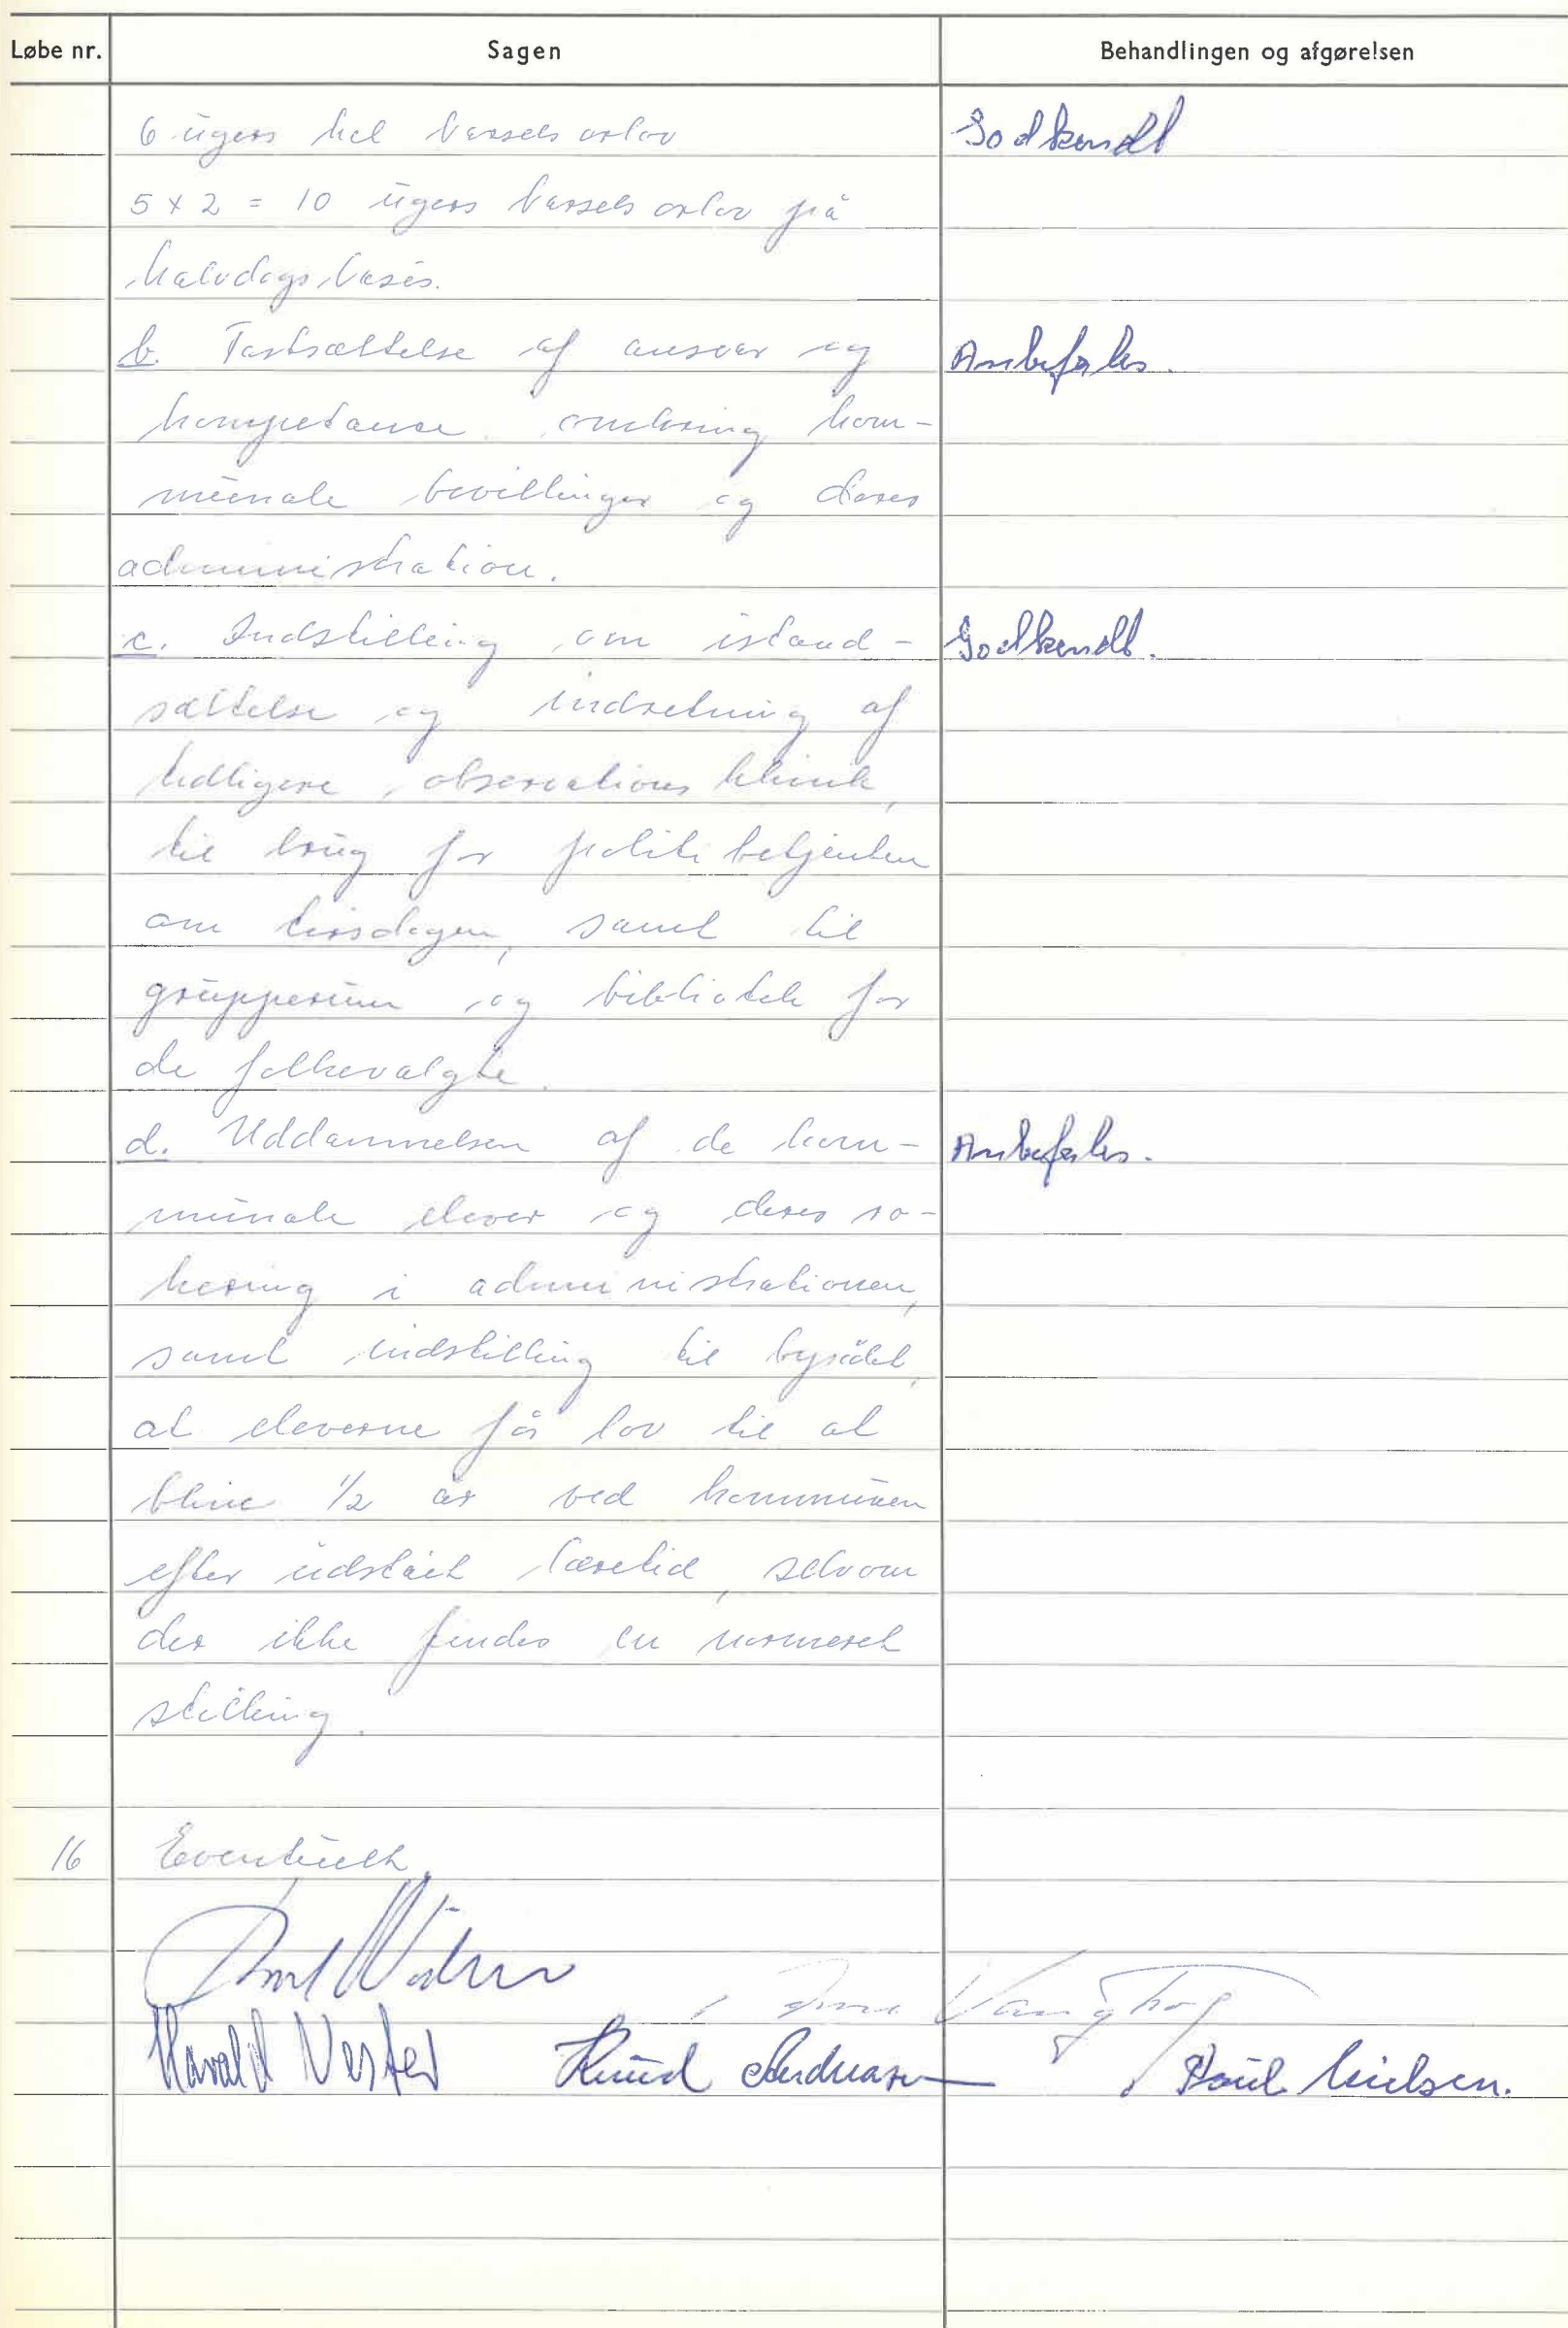 Løbe nr. Sagen Behandlingen og afgørelsen
6 ugers hel barsels orlov Godkendt
5 x 2 = 10 ugers barsels orlov på
halvdags basis.
b. Fastsættelse af ansvar og Anbefales.
kompetance omkring kom-
munale bevillinger og deres
administration.
c. Indstilling om istand- Godkendt.
sættelse og indretning af
tidligere observations klinik,
til brug for politi betjenten
om tirsdagen, samt til
grupperum og bibliotek for
de folkevalgte.
d. Uddannelsen af de kom- Anbefales.
munale elever og deres ro-
kering i administrationen,
samt indstilling til byrådet,
at eleverne får lov til at
blive 1/2 år ved kommunen
efter udstået læretid, selvom
der ikke findes en normeret
stilling.
16 Eventuelt.
Vangthog
Harald Vester Knud Andreasen Poul Nielsen.